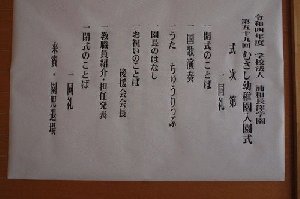 令和四年度 学校法人 浦和長澤学園
第五十九回 むさし幼稚園入園式
式次第
一同礼
一開式のことば
一国歌演奏
一うた ちゅうりっぷ
園長のはなし
お祝いのことば
後援会会長
一教職員紹介・担任発表
一閉式のことば
一同礼
来賓・園児退場